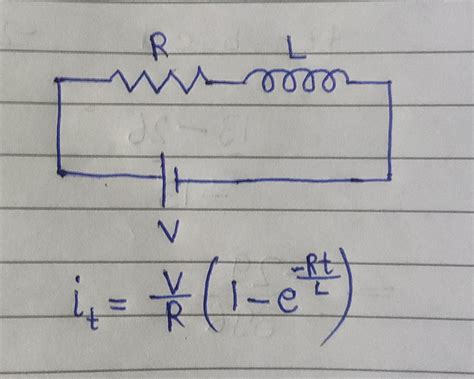 R L
V
i_t = V/R (1 - e^(-Rt/L))